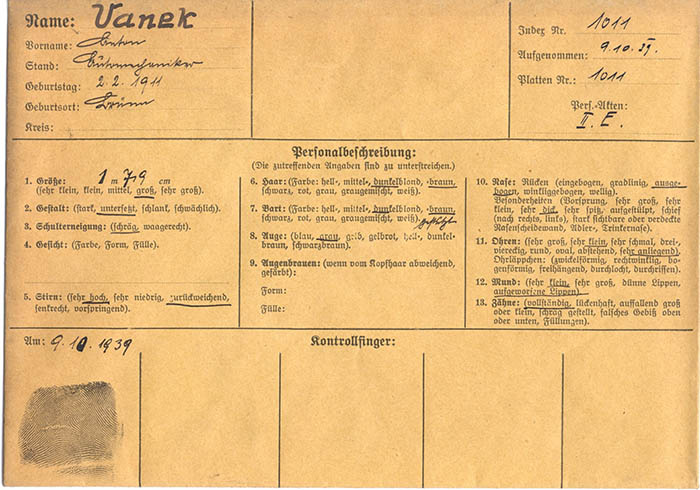 Name: Vanek
Vorname: Anton
Stand: Automechaniker
Geburtstag: 2.2.1911
Geburtsort: Brünn
Kreis:
Index Nr. 1011
Aufgenommen: 9.10.39.
Platten Nr.: 1011
Pers.-Akten:
II. E.
Personalbeschreibung:
(Die zutreffenden Angaben sind zu unterstreichen.)
1. Größe: 1 m 79 cm
(sehr klein, klein, mittel, groß, sehr groß).
2. Gestalt: (stark, untersetzt, schlank, schwächlich).
3. Schulterneigung: (schräg, waagerecht).
4. Gesicht: (Farbe, Form, Fülle).
5. Stirn: (sehr hoch, sehr niedrig, zurückweichend,
senkrecht, vorspringend).
6. Haar: (Farbe: hell-, mittel-, dunkelblond, -braun,
schwarz, rot, grau, graugemischt, weiß).
7. Bart: (Farbe: hell-, mittel-, dunkelblond, -braun,
schwarz, rot, grau, graugemischt, weiß).
8. Auge: (blau, grau, gelb, gelbrot, hell-, dunkel-
braun, schwarzbraun).
9. Augenbrauen: (wenn vom Kopfhaar abweichend,
gefärbt):
Form:
Fülle:
10. Nase: Rücken (eingebogen, gradlinig, ausge-
bogen, winkliggebogen, wellig).
Besonderheiten (Vorsprung, sehr groß, sehr
klein, sehr dick, sehr spitz, aufgestülpt, schief
(nach rechts, links), stark sichtbare oder verdeckte
Nasenscheidewand, Adler-, Trinkernase).
11. Ohren: (sehr groß, sehr klein, sehr schmal, drei-,
viereckig, rund, oval, abstehend, sehr anliegend).
Ohrläppchen: (zwickelförmig, rechtwinklig, bo-
genförmig, freihängend, durchlocht, durchrissen).
12. Mund: (sehr klein, sehr groß, dünne Lippen,
aufgeworfene Lippen).
13. Zähne: (vollständig, lückenhaft, auffallend groß
oder klein, schräg gestellt, falsches Gebiß oben
oder unten, Füllungen).
Am: 9.10.1939
Kontrollfinger: